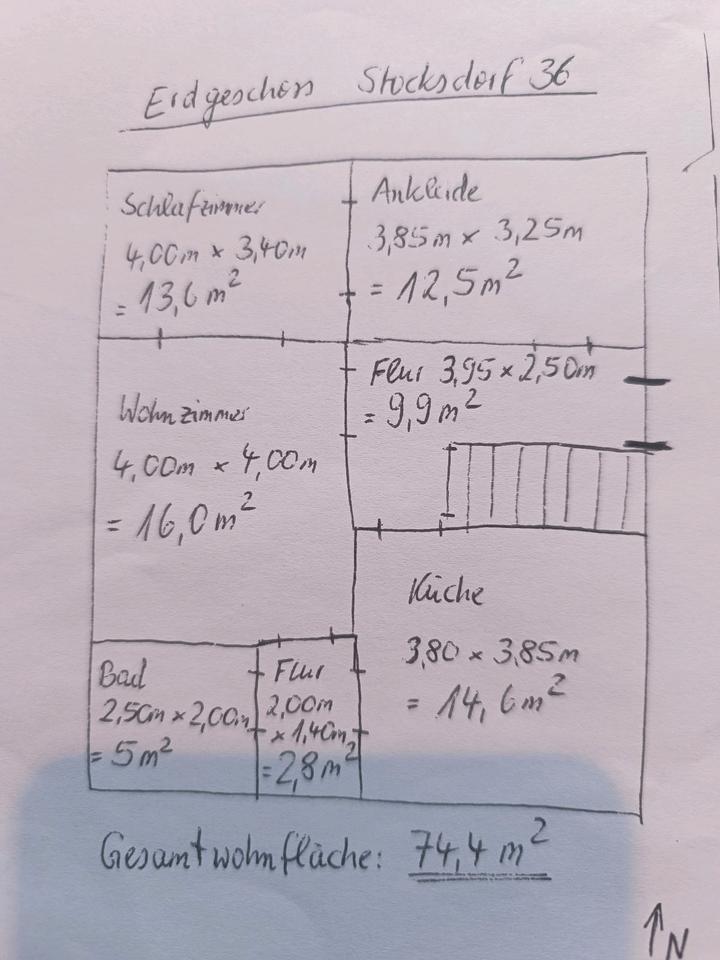 Erdgeschoss Stocksdorf 36
Schlafzimmer
4,00m × 3,40m
= 13,6 m²
Ankleide
3,85m × 3,25m
= 12,5 m²
Flur 3,95 × 2,50m
= 9,9 m²
Wohnzimmer
4,00m × 4,00m
= 16,0 m²
Küche
3,80 × 3,85m
= 14,6 m²
Bad
2,50m × 2,00m
= 5 m²
Flur
2,00m
× 1,40m
= 2,8 m²
Gesamtwohnfläche: 74,4 m²
N